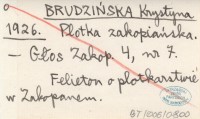 BRUDZIŃSKA Krystyna
1926. Plotka zakopiańska.
— Głos Zakop. 4, nr 7.
Felieton o plotkarstwie
w Zakopanem.
BT/008/0800